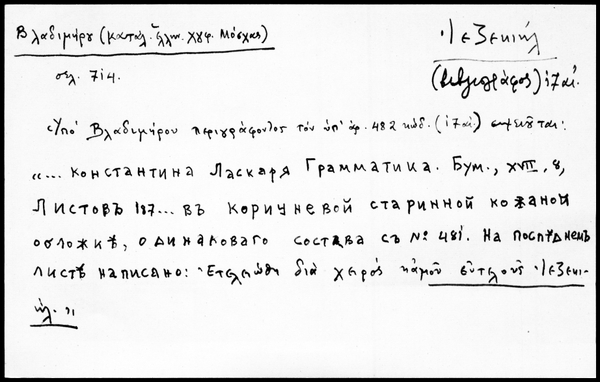 Βλαδιμήρου (Καταλ. ἑλλην. χγφ. Μόσχας)
Ἰεζεκιήλ
σελ. 714.
(βιβλιογράφος) ιζ' αἰ.
Ὑπὸ Βλαδιμήρου περιγράφοντος τὸν ὑπ' ἀρ. 482 κώδ. (ιζ' αἰ.) σημειοῦται:
"... Константина Ласкаря Грамматика. Бум., XVII, 8,
Листовъ 187... въ коричневой старинной кожаной
обложкѣ, одинаковаго состава съ № 481. На послѣднемъ
листѣ написано: Ἐτελειώθη διὰ χειρὸς κἀμοῦ εὐτελοῦς Ἰεζεκι-
ήλ."